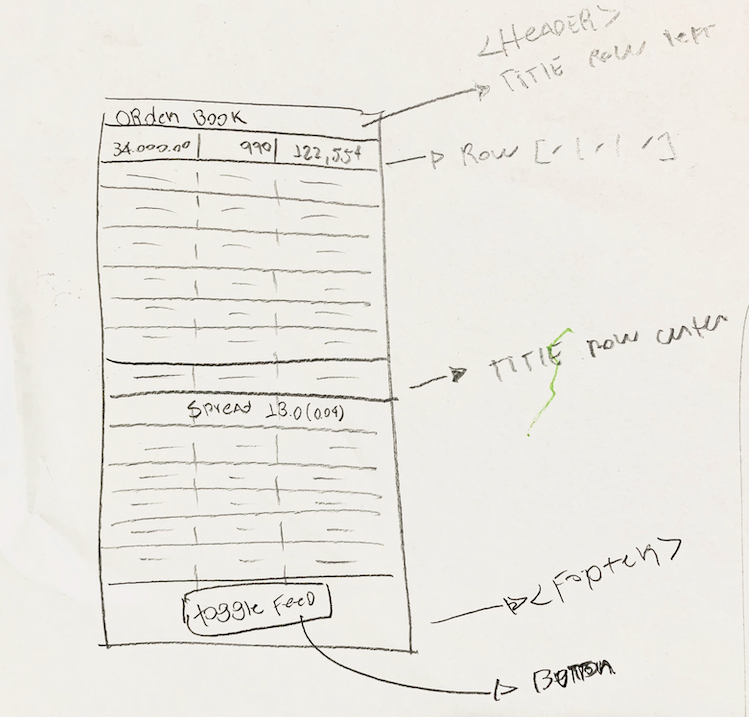 <HEADER>
TITLE row left
ORden BOOK
34.000.00 | 990 | 122,554
Row [ - | - | - ]
TITLE row center
Spread 13.0 (0.04)
<Footer>
toggle FeeD
BUTTON